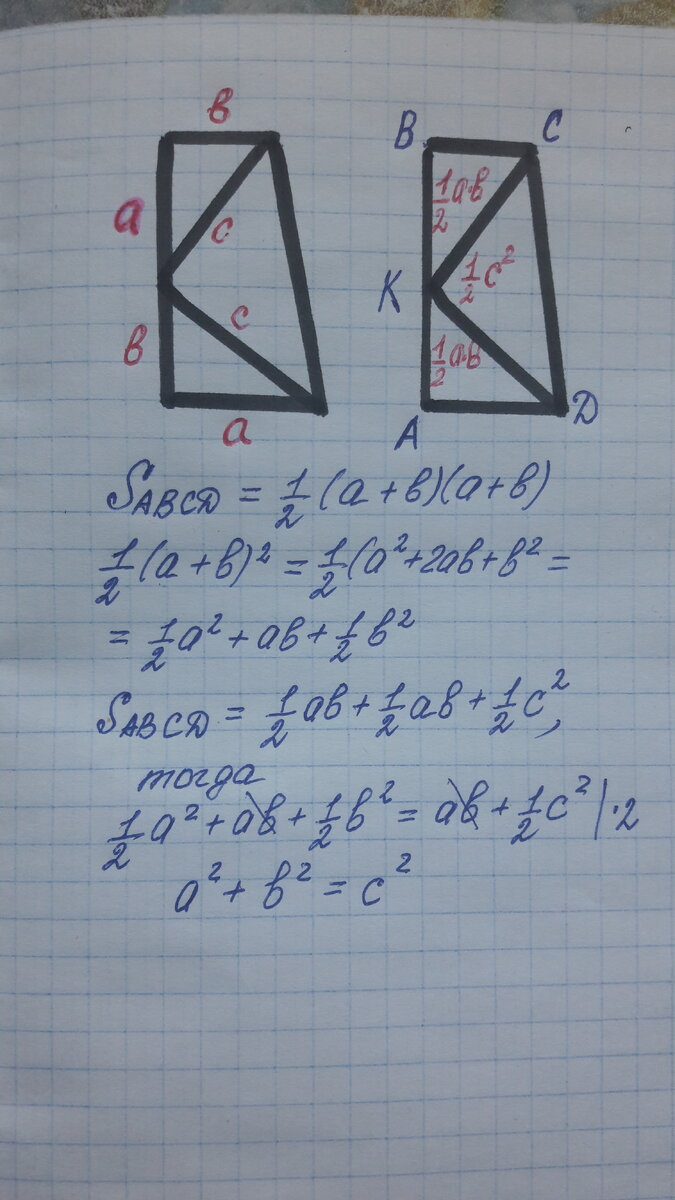 в
a
c
c
в
a
B C
½ab
½c²
K
½aв
A D
S_ABCD = ½(a+в)(a+в)
½(a+в)² = ½(a²+2ab+в² =
= ½a² + ab + ½в²
S_ABCD = ½ab + ½ab + ½c²,
тогда
½a² + ab + ½в² = ab + ½c² |·2
a² + в² = c²